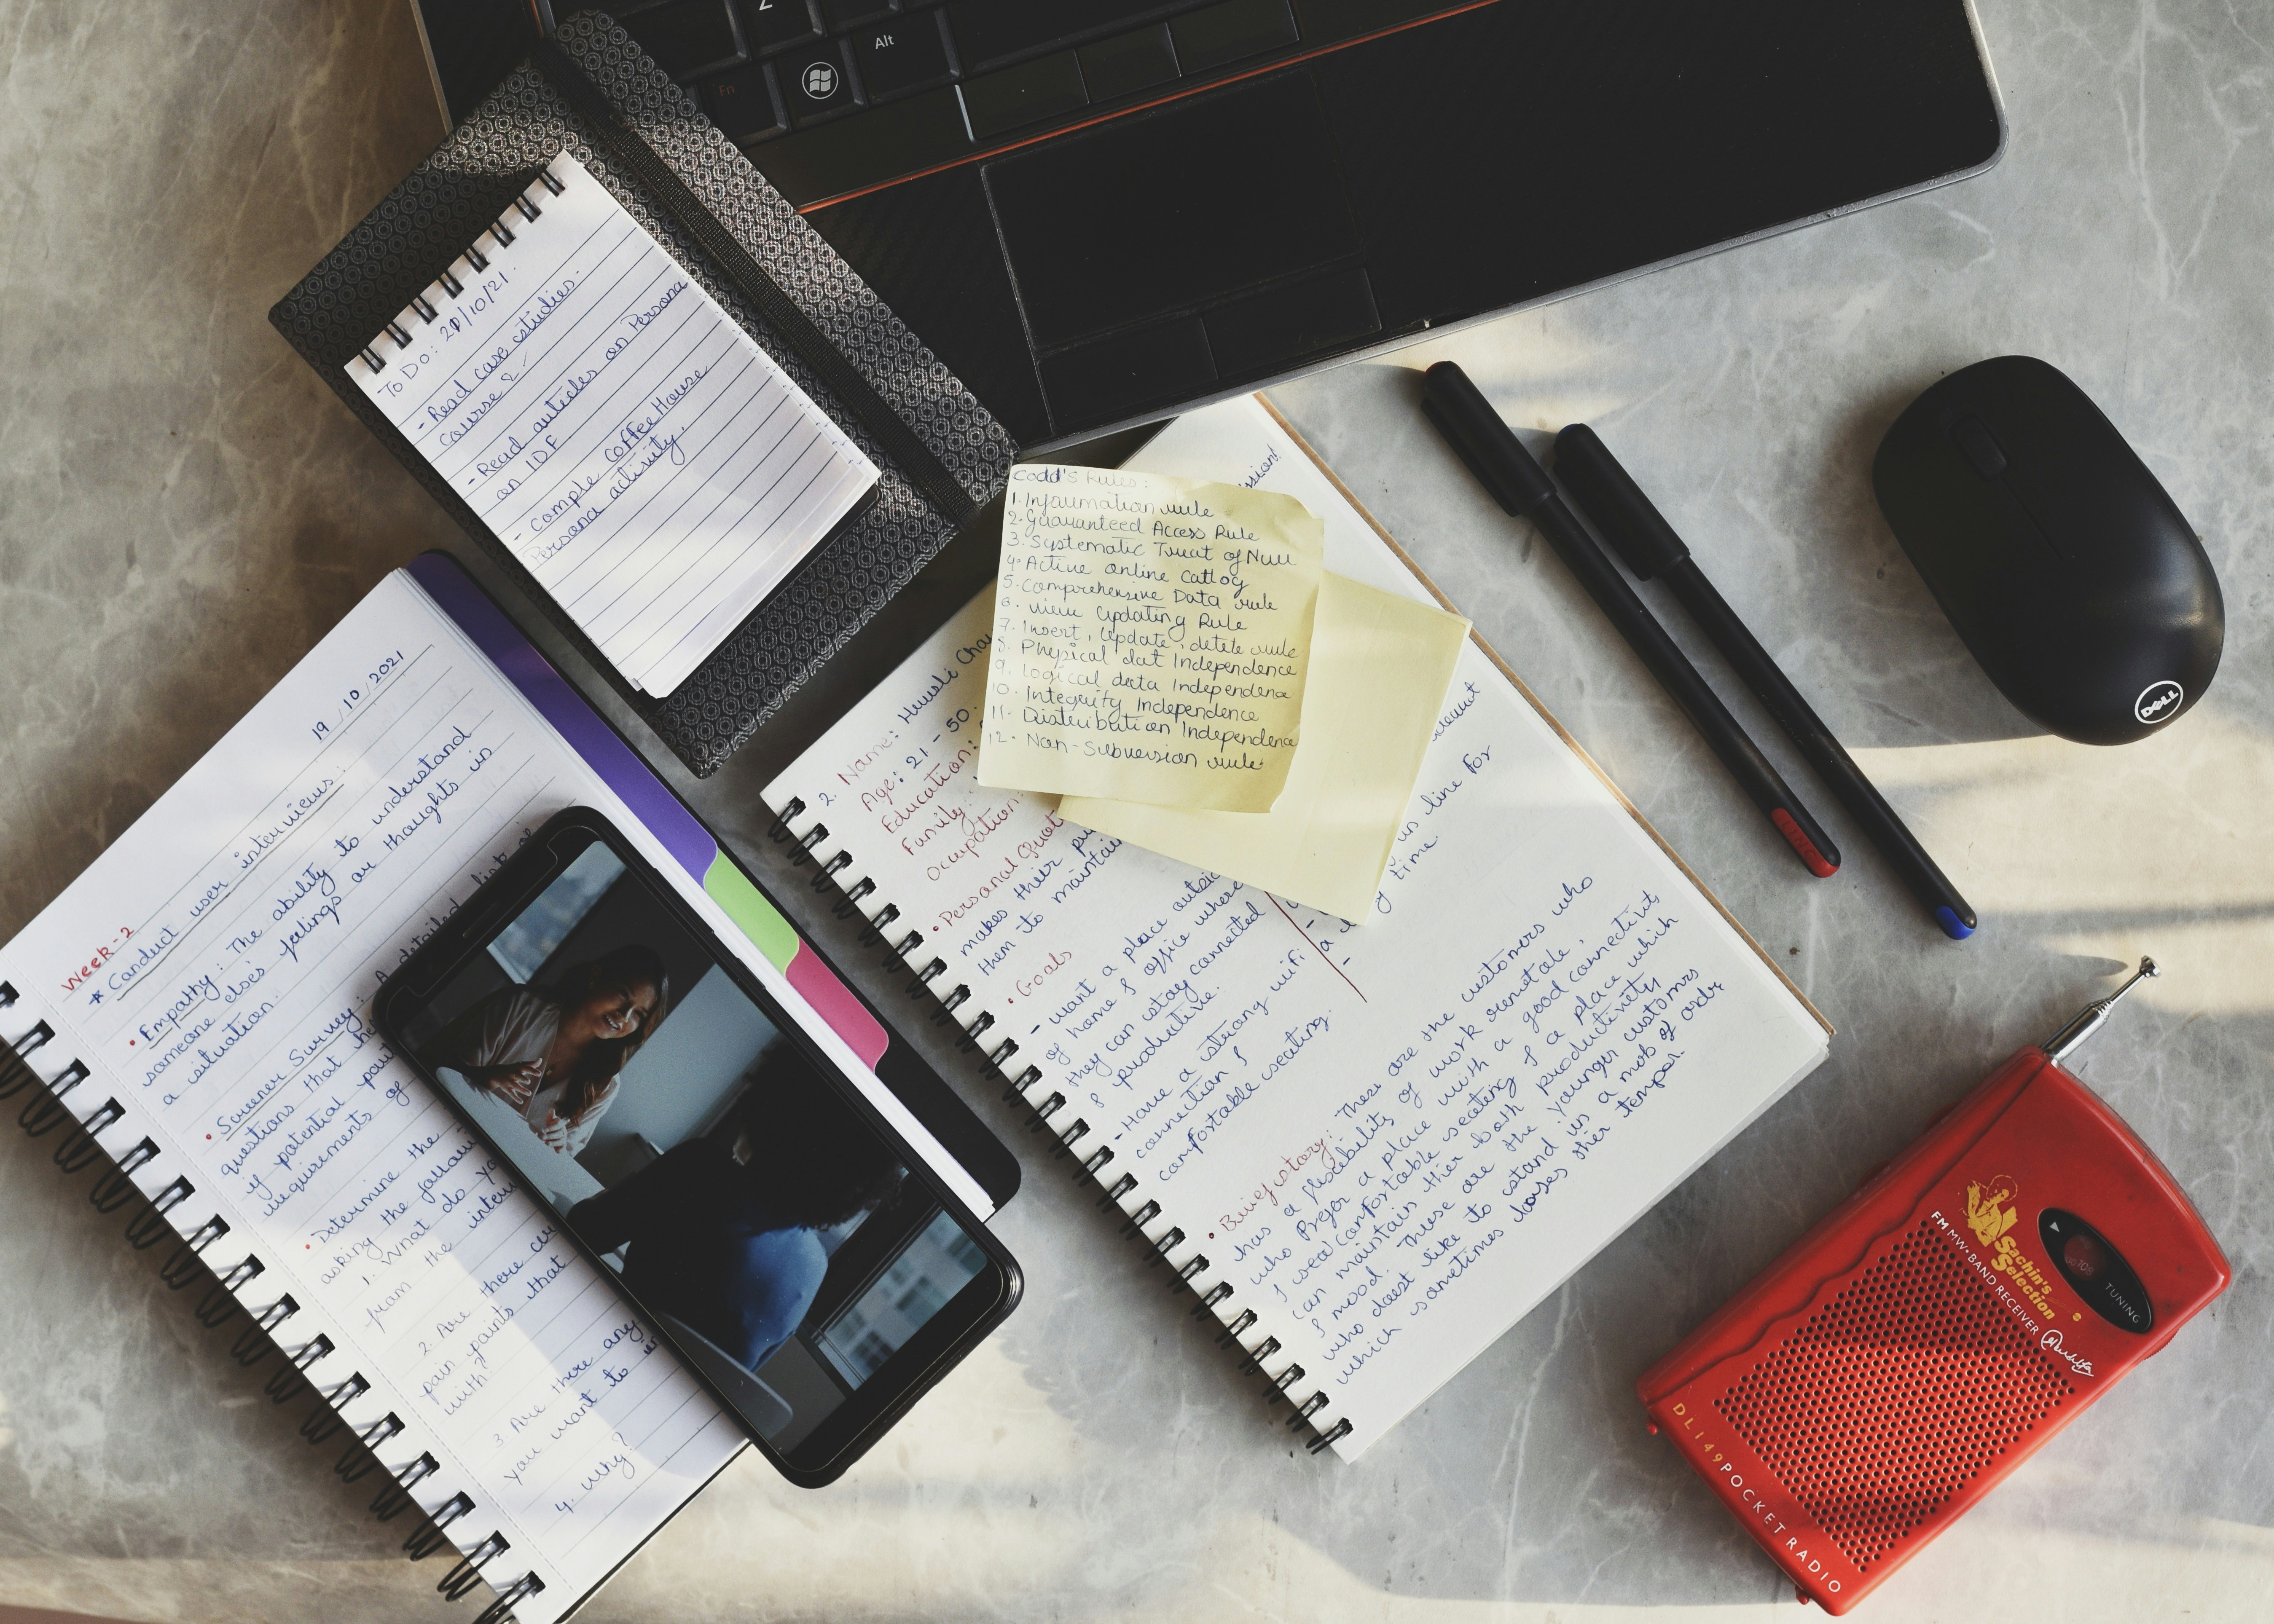 Z
Alt
Fn
To Do: 21/10/21.
- Read case studies.
course 2
- Read articles on Persona
on IDF
- Comple Coffee House
Persona activity.
Codd's Rules:
1. Information rule
2. Guaranteed Access Rule
3. Systematic Treat of Null
4. Active online Catlog
5. Comprehensive Data rule
6. View Updating Rule
7. Insert, Update, detele rule
8. Physical dat Independence
9. Logical data Independence
10. Integrity Independence
11. Distribution Independence
12. Non-Subversion rule
19/10/2021
Week-2
* Conduct user interviews:
• Empathy: The ability to understand
someone else's feelings or thoughts in
a situation.
• Screener Survey: A detailed list of
questions that
if potential
requirements of
• Determine the
asking the
1. What do yo
from the
2. Are there
pain points that
with?
3 Are there any
you want to
4. Why?
2. Name:
Age: 21 - 50
Education:
Family:
Occupation:
• Personal
makes their
them to maintain
• Goals
- want a place
of home & office where
they can stay connected
& productive.
- Have a strong wifi
connection &
comfortable seating.
in line for
time
• Brief story: These are the customers who
has a flexibility of work remotale,
who Prefer a place with a good connectivity
& comfortable seating & a place which
can maintain thier both productivity
& mood. These are the younger customrs
who doest like to stand in a mob of order
which sometimes looses thier temper.
DELL
Sachin's
Selection
FM MW•BAND RECEIVER
TUNING
DL149 POCKET RADIO